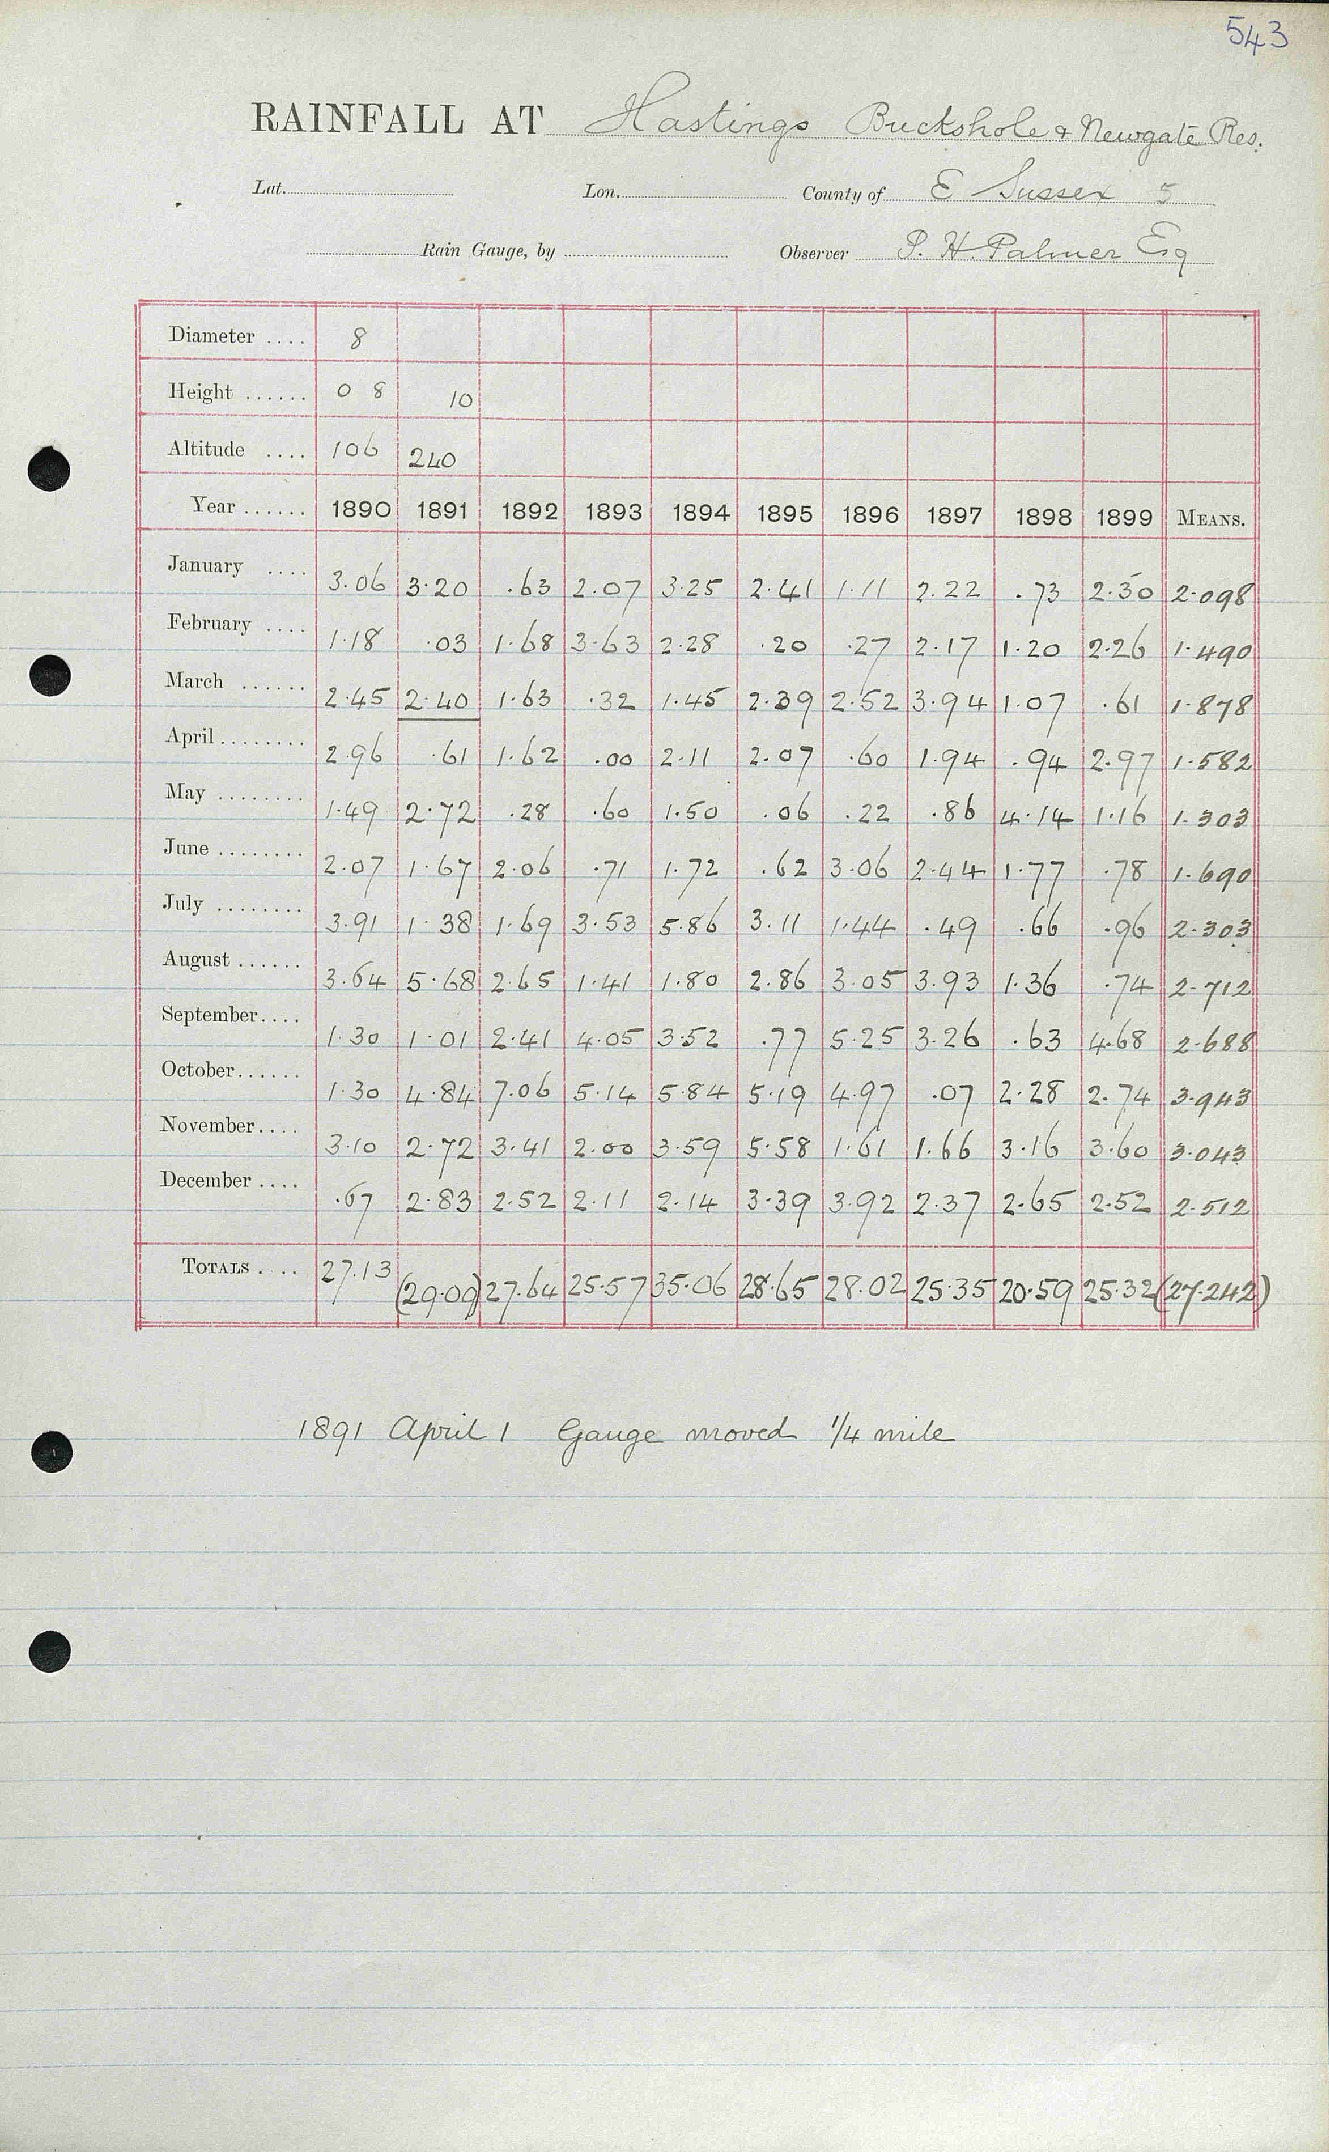 543
RAINFALL AT Hastings Buckshole & Newgate Res.
Lat. Lon. County of E Sussex 5
Rain Gauge, by Observer P. H. Palmer Esq
Diameter .... 8
Height ...... 0 8 10
Altitude .... 106 240
Year ...... 1890 1891 1892 1893 1894 1895 1896 1897 1898 1899 MEANS.
January .... 3.06 3.20 .63 2.07 3.25 2.41 1.11 2.22 .73 2.30 2.098
February .... 1.18 .03 1.68 3.63 2.28 .20 .27 2.17 1.20 2.26 1.490
March ...... 2.45 2.40 1.63 .32 1.45 2.39 2.52 3.94 1.07 .61 1.878
April ........ 2.96 .61 1.62 .00 2.11 2.07 .60 1.94 .94 2.97 1.582
May ........ 1.49 2.72 .28 .60 1.50 .06 .22 .86 4.14 1.16 1.303
June ........ 2.07 1.67 2.06 .71 1.72 .62 3.06 2.44 1.77 .78 1.690
July ........ 3.91 1.38 1.69 3.53 5.86 3.11 1.44 .49 .66 .96 2.303
August ...... 3.64 5.68 2.65 1.41 1.80 2.86 3.05 3.93 1.36 .74 2.712
September .... 1.30 1.01 2.41 4.05 3.52 .77 5.25 3.26 .63 4.68 2.688
October ...... 1.30 4.84 7.06 5.14 5.84 5.19 4.97 .07 2.28 2.74 3.943
November .... 3.10 2.72 3.41 2.00 3.59 5.58 1.61 1.66 3.16 3.60 3.043
December .... .67 2.83 2.52 2.11 2.14 3.39 3.92 2.37 2.65 2.52 2.512
TOTALS .... 27.13 (29.09) 27.64 25.57 35.06 28.65 28.02 25.35 20.59 25.32 (27.242)
1891 April 1 Gauge moved 1/4 mile